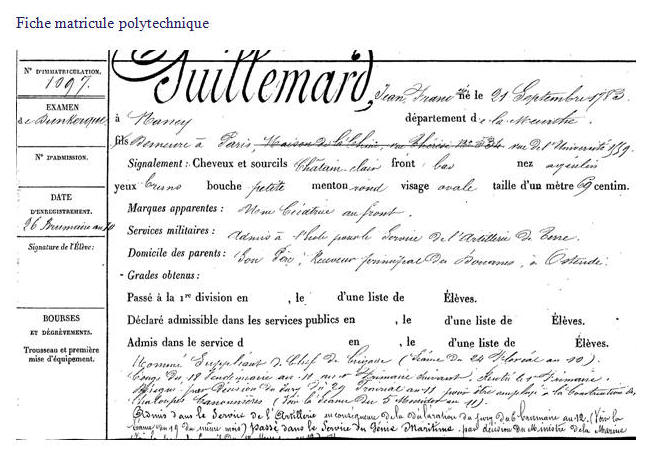 Fiche matricule polytechnique
N° D'IMMATRICULATION.
1097.
EXAMEN
de Dunkerque
N° D'ADMISSION.
DATE
D'ENREGISTREMENT.
26 Brumaire an 10
Signature de l'Élève:
BOURSES
ET DÉGRÈVEMENTS.
Trousseau et première
mise d'équipement.
Guillemard, Jean, Franc né le 21 Septembre 1783.
à Nancy département de la Meurthe.
fils Demeure à Paris, Maison de la Chine, rue Thérèse N° rue de l'Université
Signalement: Cheveux et sourcils Chatain clair front bas nez aquilin
yeux bruns bouche petite menton rond visage ovale taille d'un mètre 69 centim.
Marques apparentes: Une Cicatrice au front.
Services militaires: Admis à l'École pour le Service de l'Artillerie de Terre.
Domicile des parents: Son Père, Receveur principal des Douanes, à Ostende.
- Grades obtenus:
Passé à la 1re division en , le d'une liste de Élèves.
Déclaré admissible dans les services publics en , le d'une liste de Élèves.
Admis dans le service d en , le d'une liste de Élèves.
Nommé Suppléant de Chef de Brigade (Séance du 24 Floréal an 10).
Congé du 18 Vendémiaire an 11 au 1er Frimaire suivant. Rentré le 1er Frimaire.
par Décision du Jury du 29 Prairial an 11 pour être employé à la Construction des
Chaloupes Canonnières (Voir la Séance du 5 Messidor an 11).
Admis dans le Service de l'Artillerie en conséquence de la Déclaration du Jury du 6 Brumaire an 12. (Voir la
Séance du 19 du même mois) passé dans le Service du Génie Maritime par décision du Ministre de la Marine